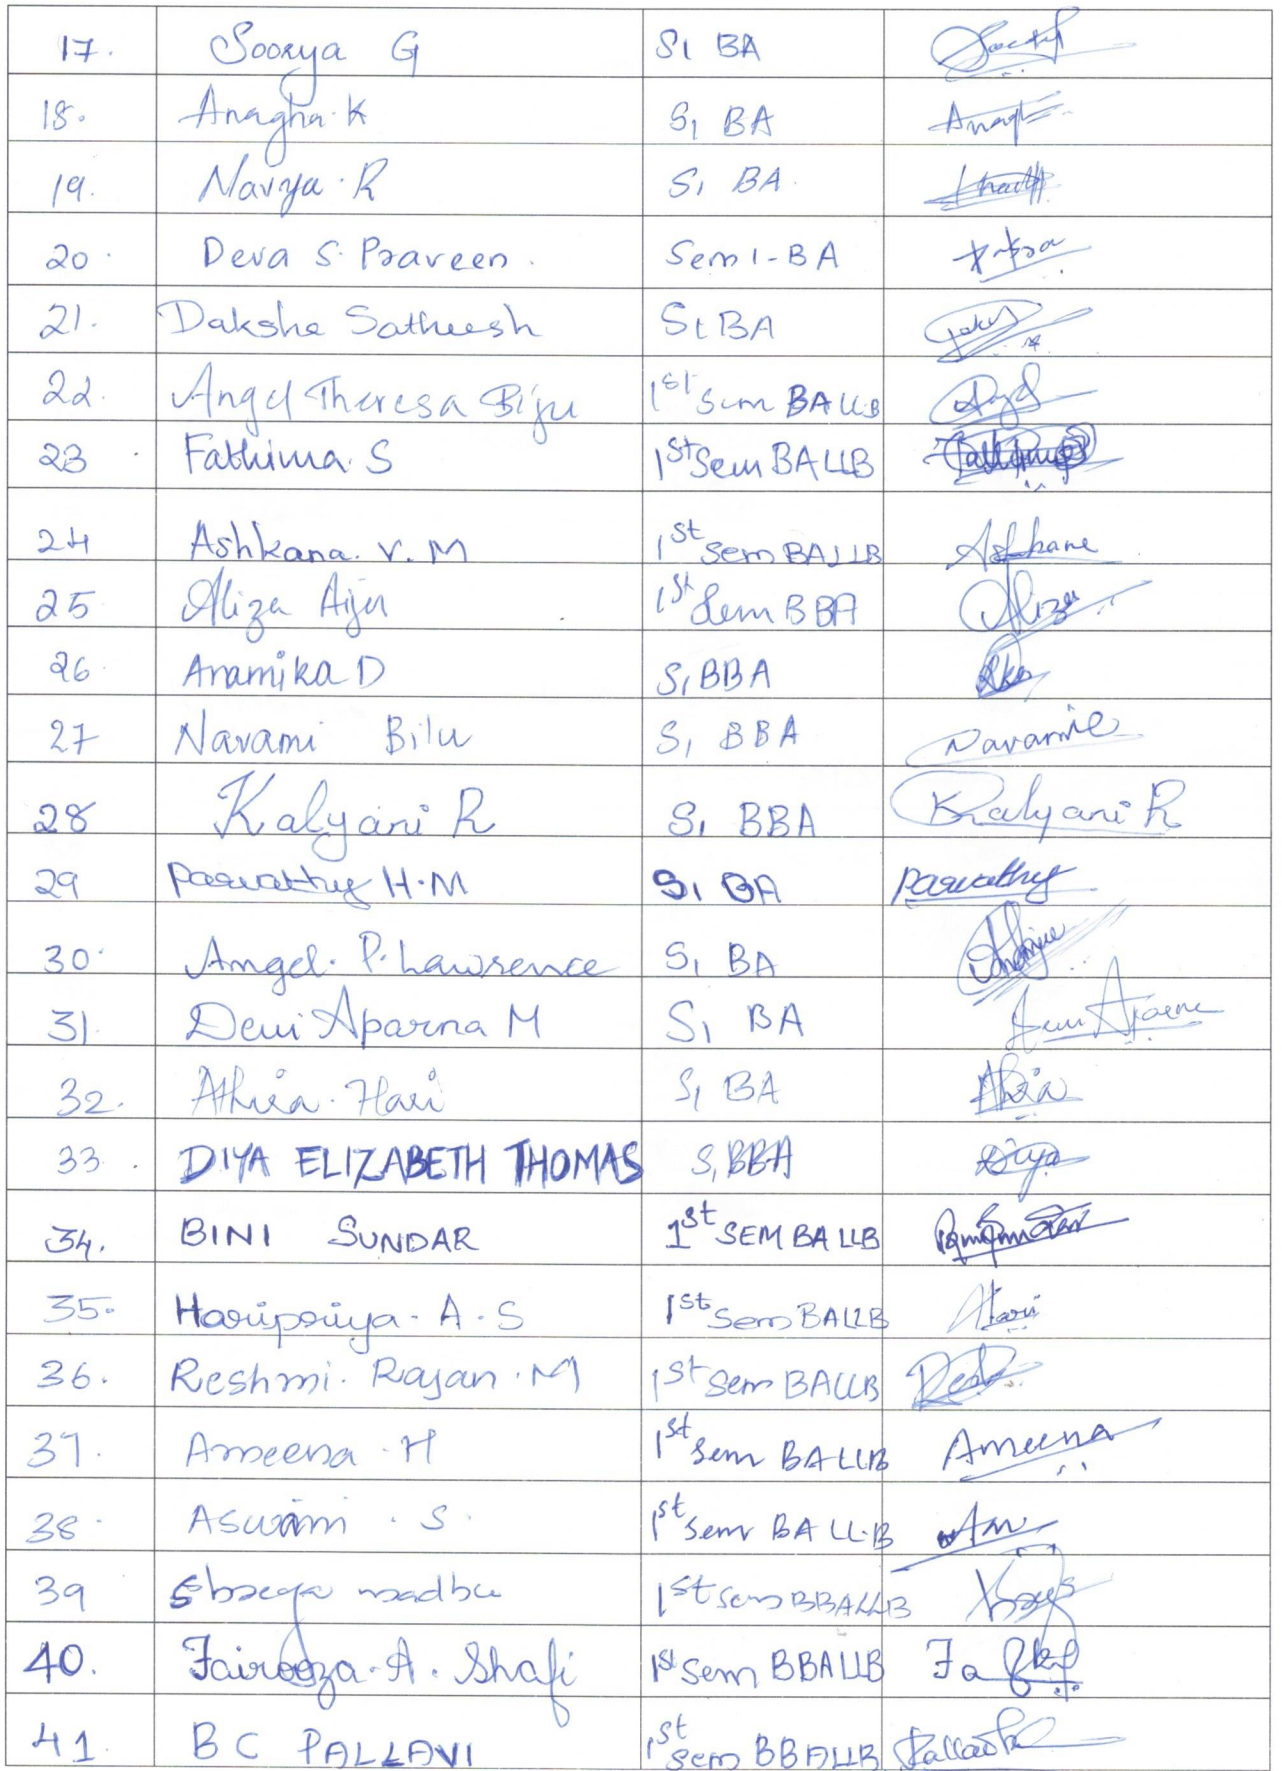 17. Soorya G S1 BA
18. Anagha. K S1 BA Anagh
19. Navya. R S1 BA.
20. Deva S. Praveen. Sem 1-BA
21. Daksha Satheesh S1 BA
22. Angel Theresa Biju 1st Sem BA LLB
23. Fathima. S 1st Sem BALLB Fathima
24 Ashkana. V. M 1st Sem BALLB Ashkana
25 Aliza Aiju 1st Sem BBA Aliza
26. Anamika D S1 BBA
27 Navami Bilu S1 BBA Navami
28 Kalyani R S1 BBA Kalyani R
29 Parvathy H.M S1 BA Parvathy
30. Angel. P. Lawrence S1 BA
31. Devi Aparna M S1 BA
32. Athira. Hari S1 BA
33. DIYA ELIZABETH THOMAS S1 BBA Diya
34. BINI SUNDAR 1st SEM BA LLB
35. Haripriya. A. S 1st Sem BALLB Hari
36. Reshmi. Rajan. M 1st Sem BALLB
37. Ameena. H 1st Sem BALLB Ameena
38. Aswami. S. 1st Sem BA LL.B
39 madhu 1st Sem BBALLB
40. Fairooza. A. Shafi 1st Sem BBALLB
41. B C PALLAVI 1st Sem BBALLB Pallavi